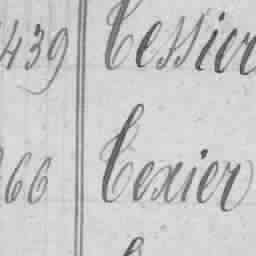 439 Tessier
66 Texier